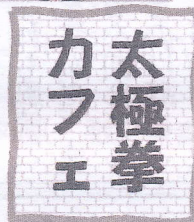 太極拳
カフェ